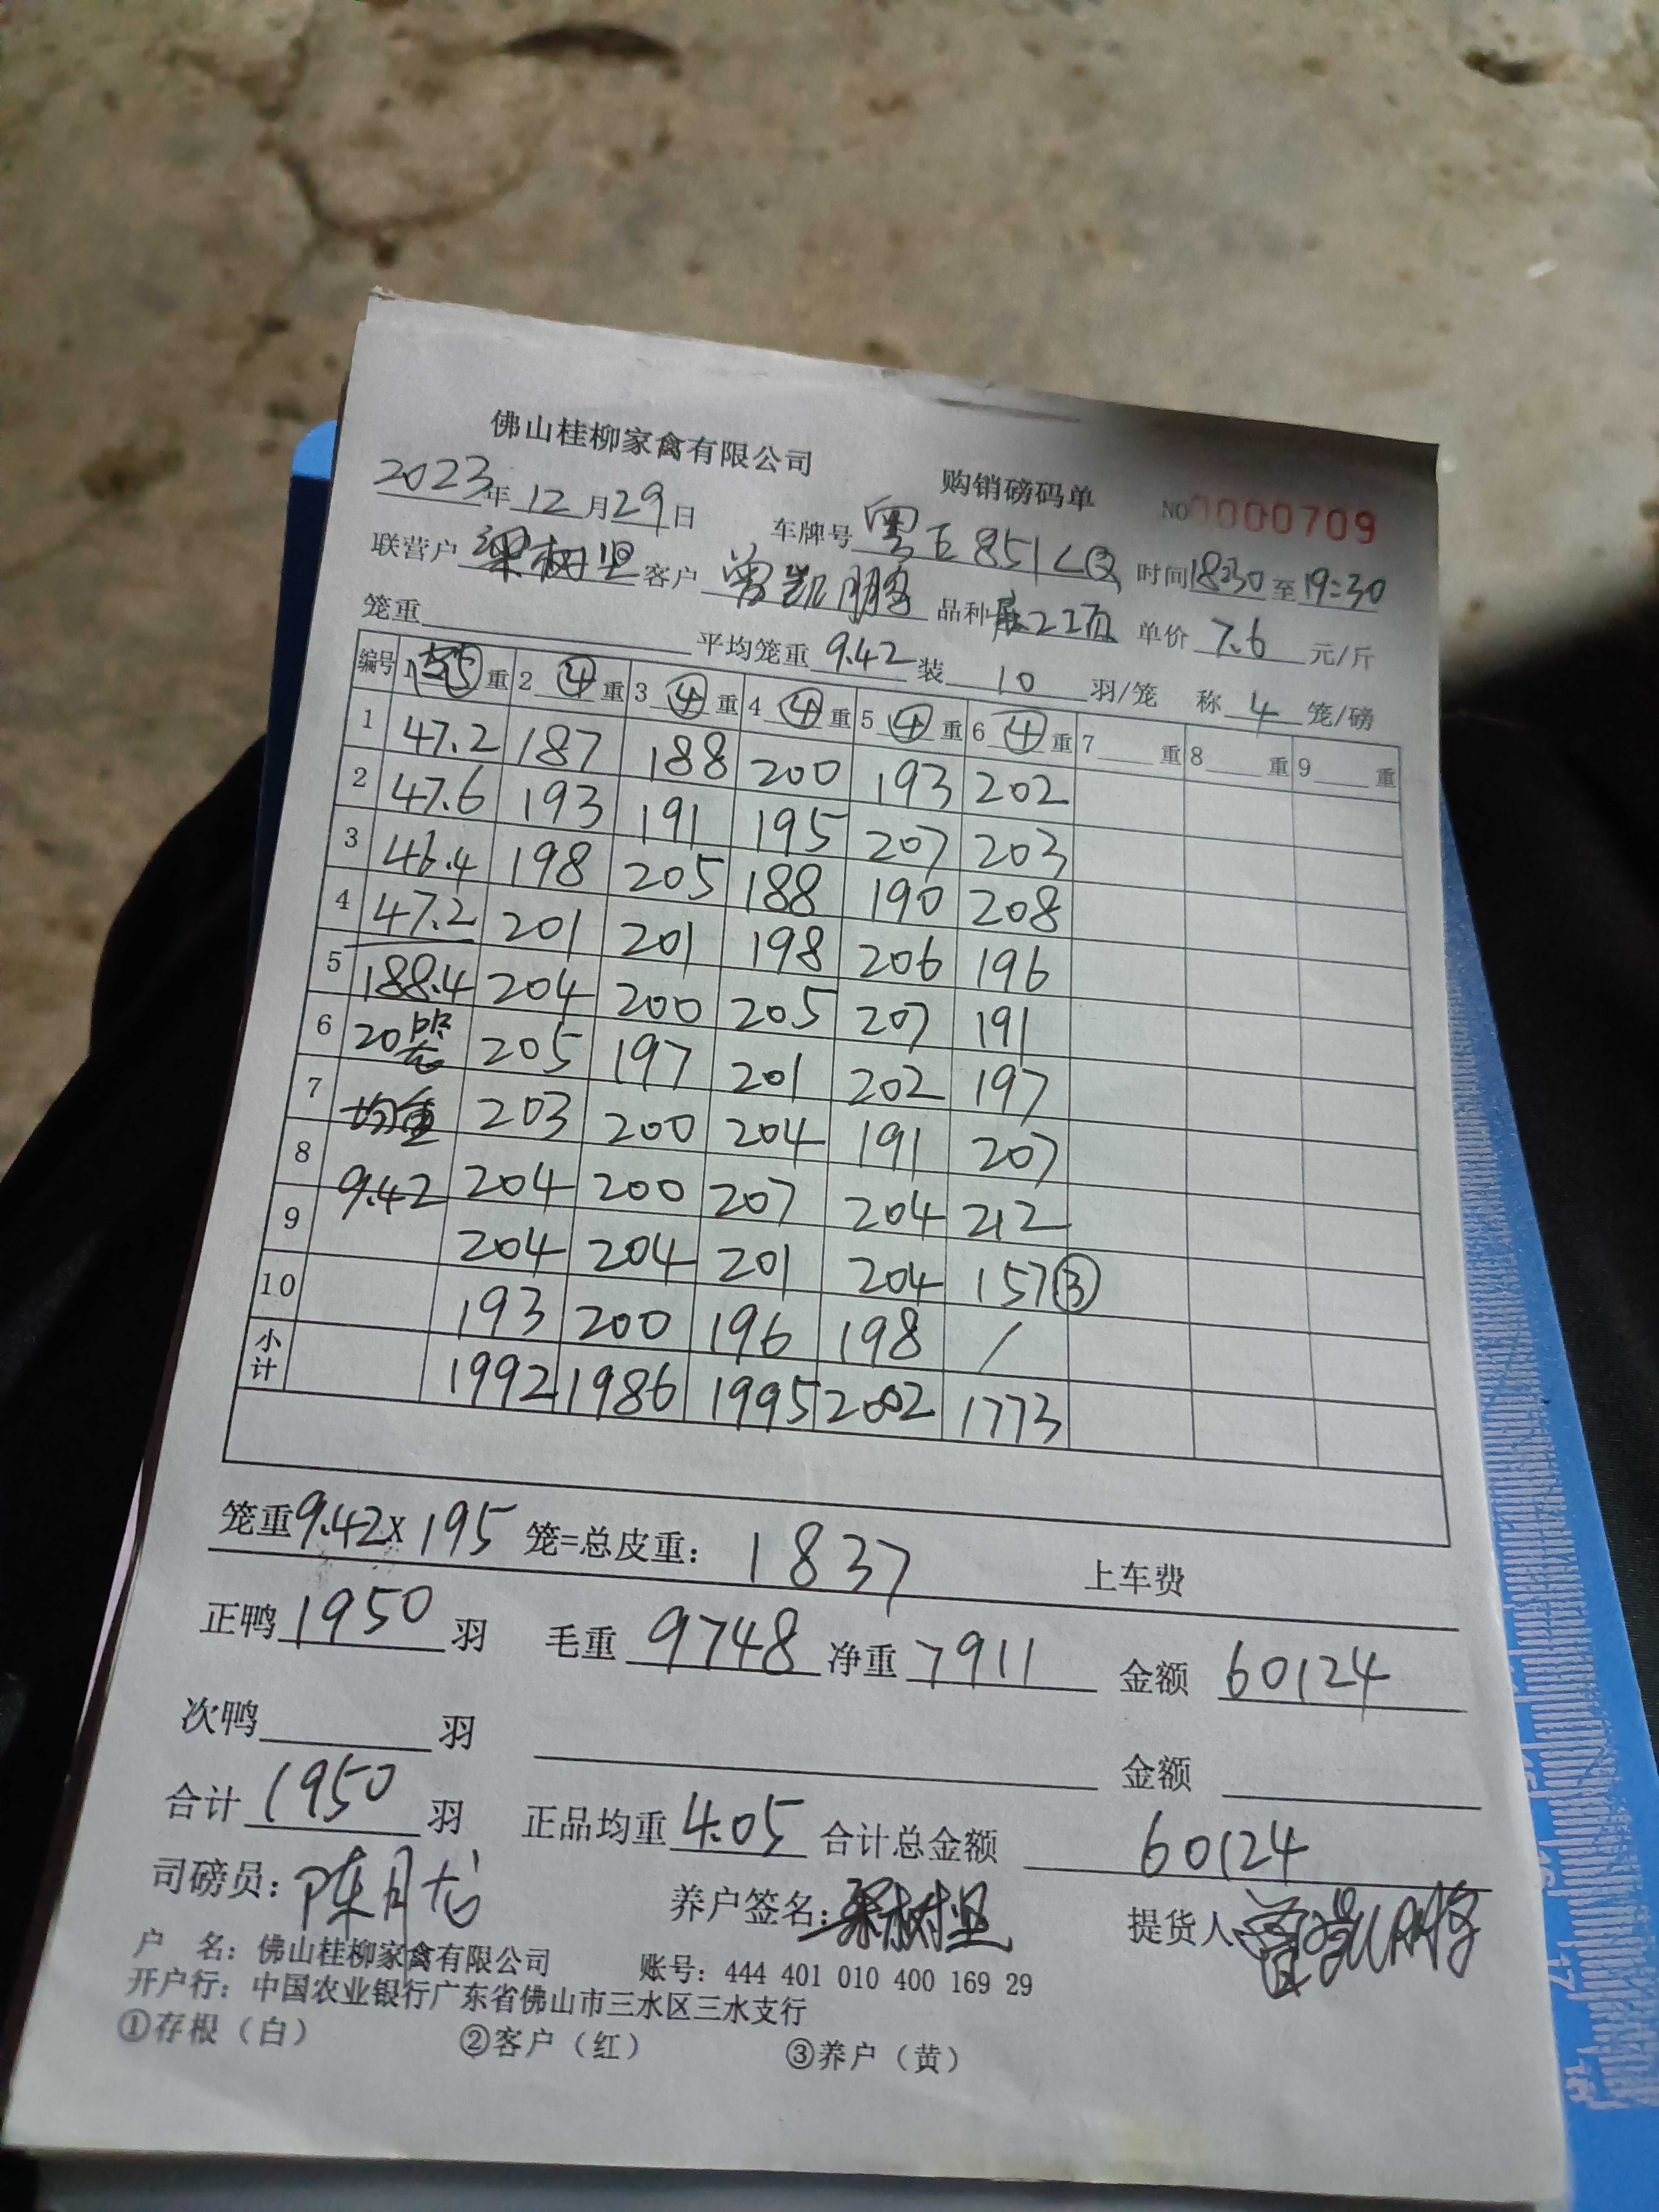 佛山桂柳家禽有限公司 购销磅码单 NO 0000709
2023年12月29日 车牌号 粤E851LQ 时间18:30至19:30
联营户 梁树坚 客户 曾凯鹏 品种 单价 7.6 元/斤
笼重 平均笼重 9.42 装 10 羽/笼 称 4 笼/磅
编号 1 ⑤ 重 2 ④ 重 3 ④ 重 4 ④ 重 5 ④ 重 6 ④ 重 7 重 8 重 9 重
1 47.2 187 188 200 193 202
2 47.6 193 191 195 207 203
3 46.4 198 205 188 190 208
4 47.2 201 201 198 206 196
5 188.4 204 200 205 207 191
6 20笼 205 197 201 202 197
7 均重 203 200 204 191 207
8 9.42 204 200 207 204 212
9 204 204 201 204 157③
10 193 200 196 198 /
小计 1992 1986 1995 2002 1773
笼重9.42x195 笼=总皮重: 1837 上车费
正鸭 1950 羽 毛重 9748 净重 7911 金额 60124
次鸭 羽 金额
合计 1950 羽 正品均重 4.05 合计总金额 60124
司磅员: 陈月 养户签名: 梁树坚 提货人 曾凯鹏
户 名: 佛山桂柳家禽有限公司 账号: 444 401 010 400 169 29
开户行: 中国农业银行广东省佛山市三水区三水支行
①存根（白） ②客户（红） ③养户（黄）
15
16
17
18